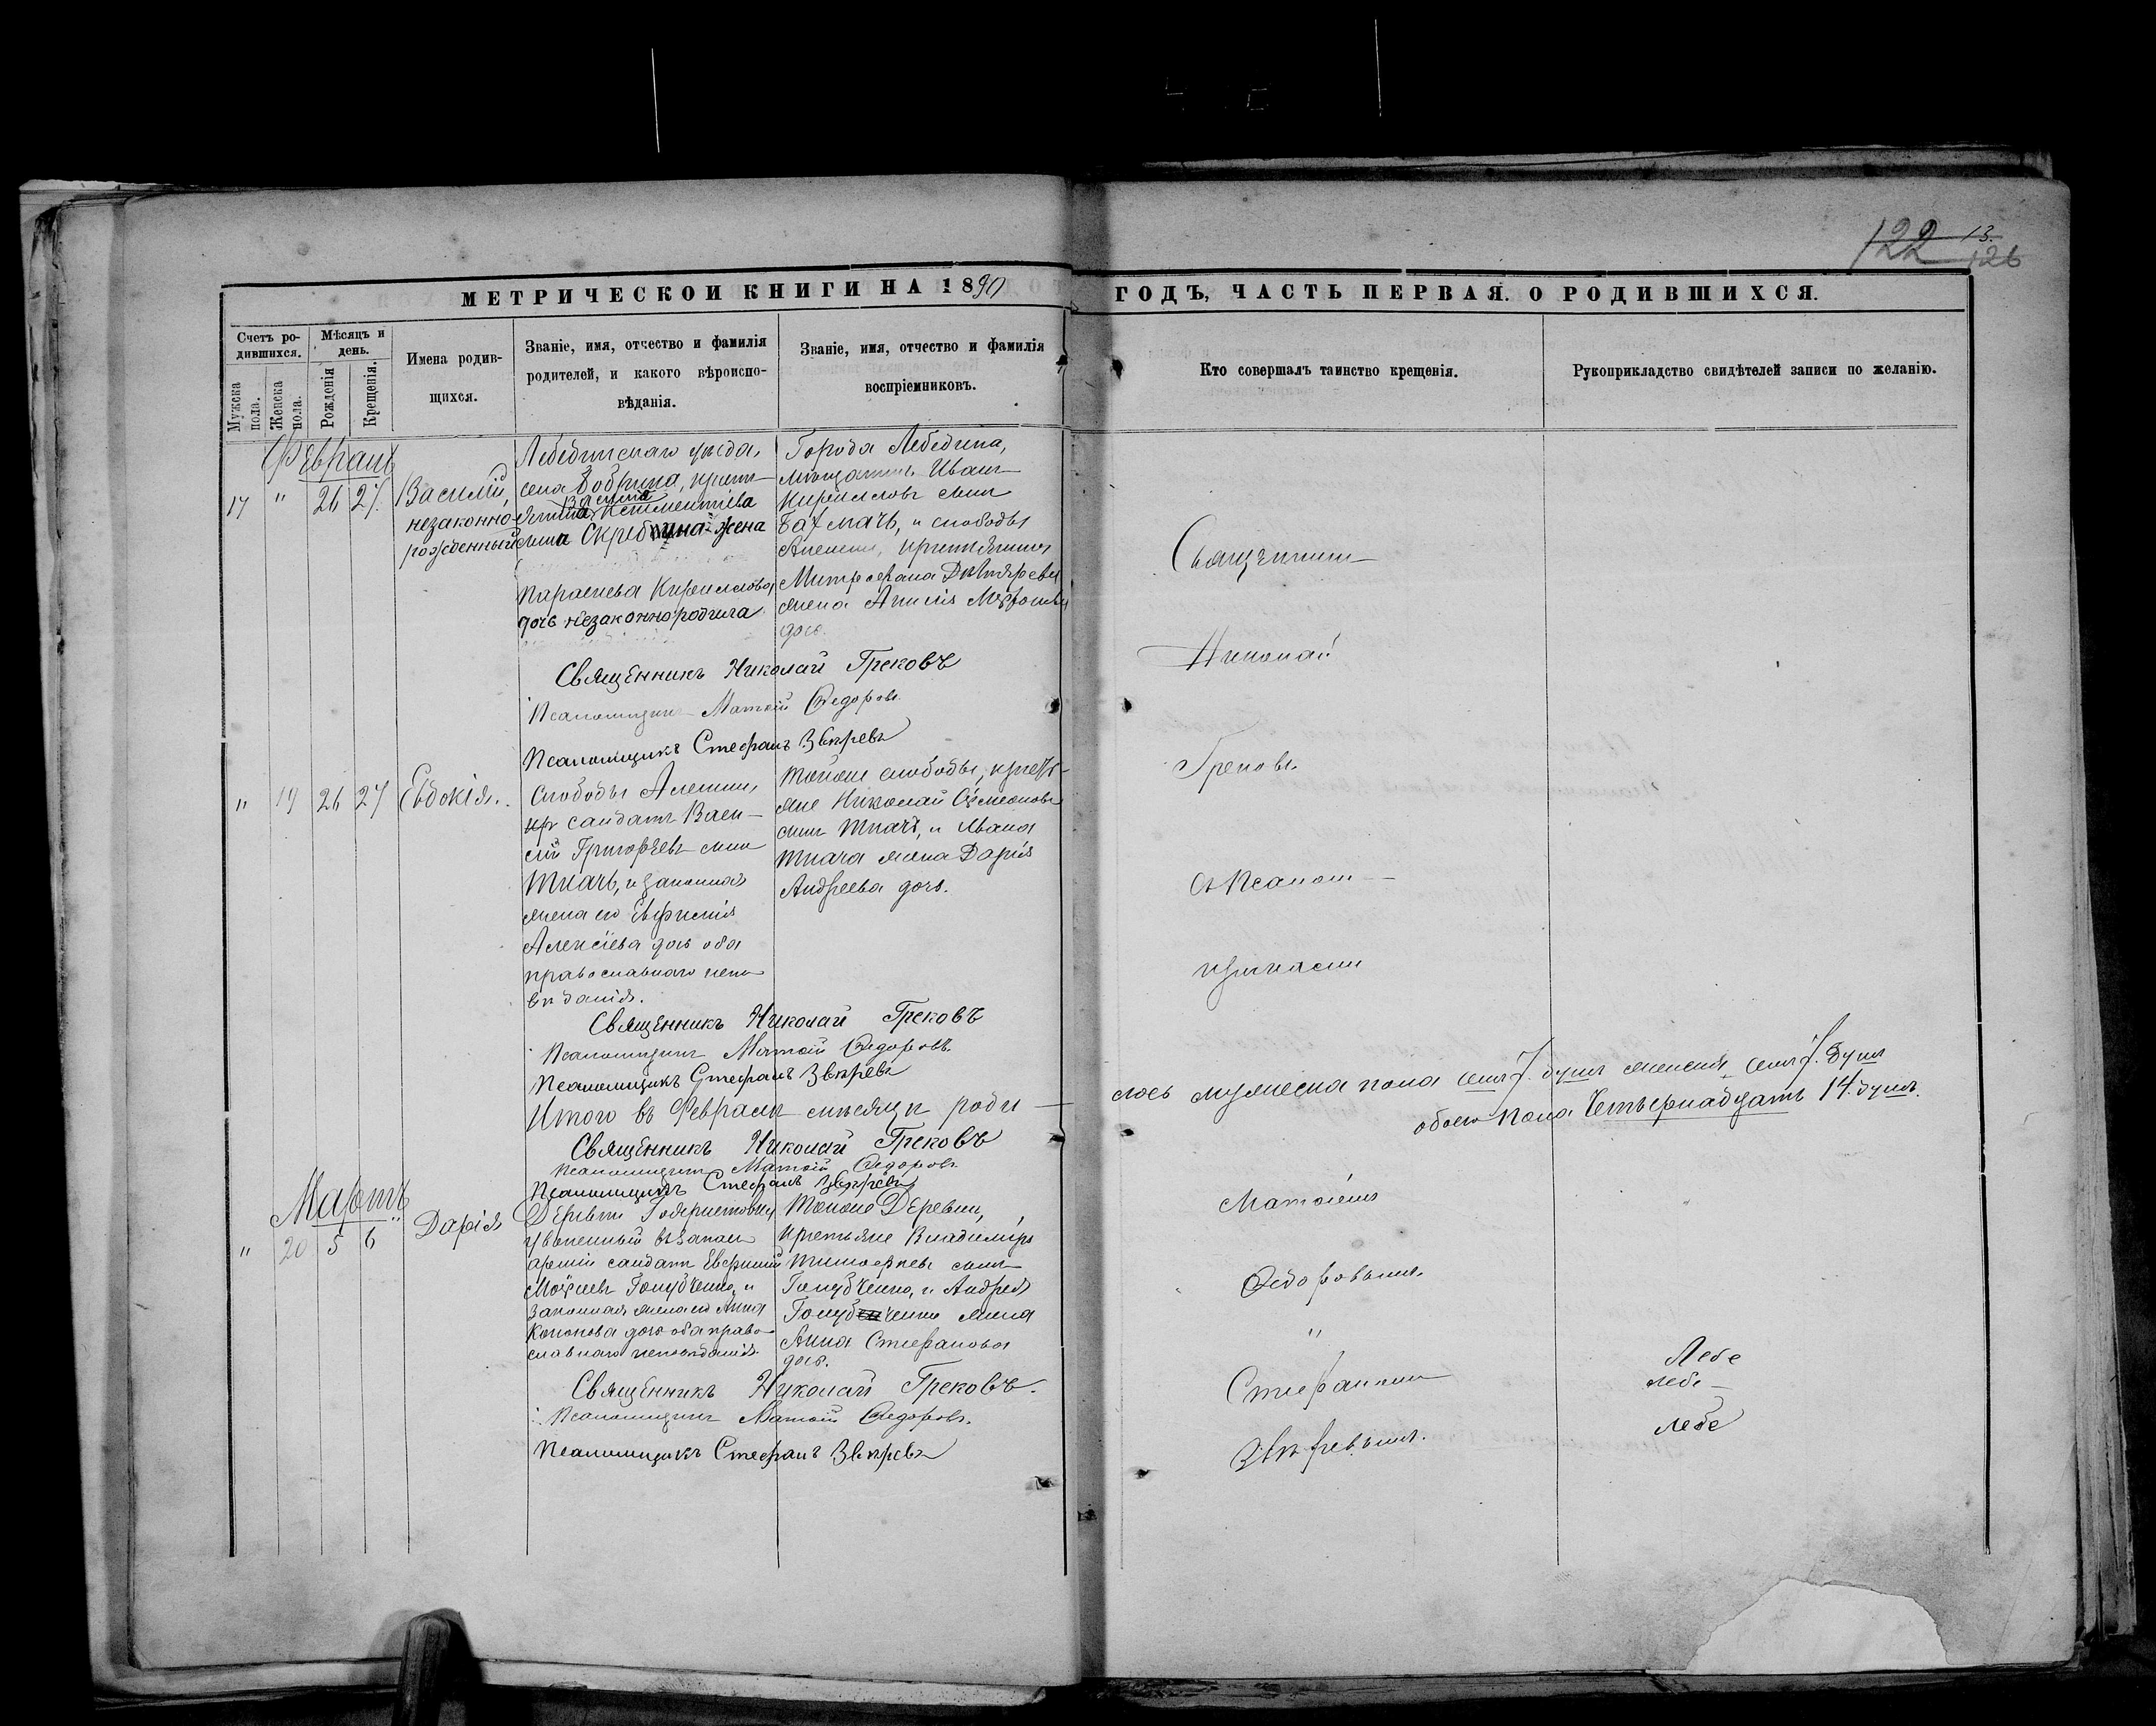 122 13.
126
МЕТРИЧЕСКОИ КНИГИ НА 1890 ГОДЪ, ЧАСТЬ ПЕРВАЯ. О РОДИВШИХСЯ.
Счетъ ро-
дившихся.
Мужска
пола.
Женска
пола.
Мѣсяцъ и
день.
Рожденія
Крещенія.
Имена родив-
щихся.
Званіе, имя, отчество и фамилія
родителей, и какого вѣроиспо-
вѣданія.
Званіе, имя, отчество и фамилія
воспріемниковъ.
Кто совершалъ таинство крещенія.
Рукоприкладство свидѣтелей записи по желанію.
Февраль
17 " 26 27.
Василій,
незаконно-
рожденный
Лебединскаго уѣзда,
села Бобрика, кресть-
янина Климентіева
сына жена
Параскева Кириллова
дочь незаконно родила
Города Лебедина,
мѣщанинъ Иванъ
Кирилловъ сынъ
Бахмачъ, и слободы
Алешни, крестьянина
Митрофана Дехтярева
жена
дочь.
Священникъ Николай Грековъ
Псаломщикъ Матѳій Ѳедоровъ.
Псаломщикъ Стефанъ Звѣревъ
" 19 26 27 Евдокія.
Слободы Алешни,
солдатъ Васи-
лій Григорьевъ сынъ
Ткачъ, и законная
жена его Евфимія
Алексіева дочь оба
православнаго испо-
вѣданія.
Тойже слободы, кресть-
яне Николай Сѵмеоновъ
сынъ Ткачъ, и Ивана
Ткача жена Дарія
Андреева дочь.
Священникъ Николай Грековъ
Псаломщикъ Матѳій Ѳедоровъ.
Псаломщикъ Стефанъ Звѣревъ
Итого въ Февралѣ мѣсяцѣ роди-
лось мужеска пола семь 7. душъ женска семь 7. душъ
обоего пола Четырнадцать 14. душъ.
Священникъ Николай Грековъ
Псаломщикъ Матѳій Ѳедоровъ.
Псаломщикъ Стефанъ Звѣревъ
Мартъ
" 20 5 6 Дарія
Деревни
уволенный въ запасъ
арміи солдатъ Евфимій
Моѵсіевъ Голубченко, и
законная жена его Анна
Кононова дочь оба право-
славнаго исповѣданія.
Тойже Деревни,
крестьяне Владиміръ
Тимофеевъ сынъ
Голубченко, и Андрея
Голубченко жена
Анна Стефанова
дочь.
Священникъ Николай Грековъ.
Псаломщикъ Матѳій Ѳедоровъ.
Псаломщикъ Стефанъ Звѣревъ
Священникъ
Николай
Грековъ
съ Псалом-
щиками
Матѳіемъ
Ѳедоровымъ.
"
Стефаномъ
Звѣревымъ.
Лебе
лебе
лебе